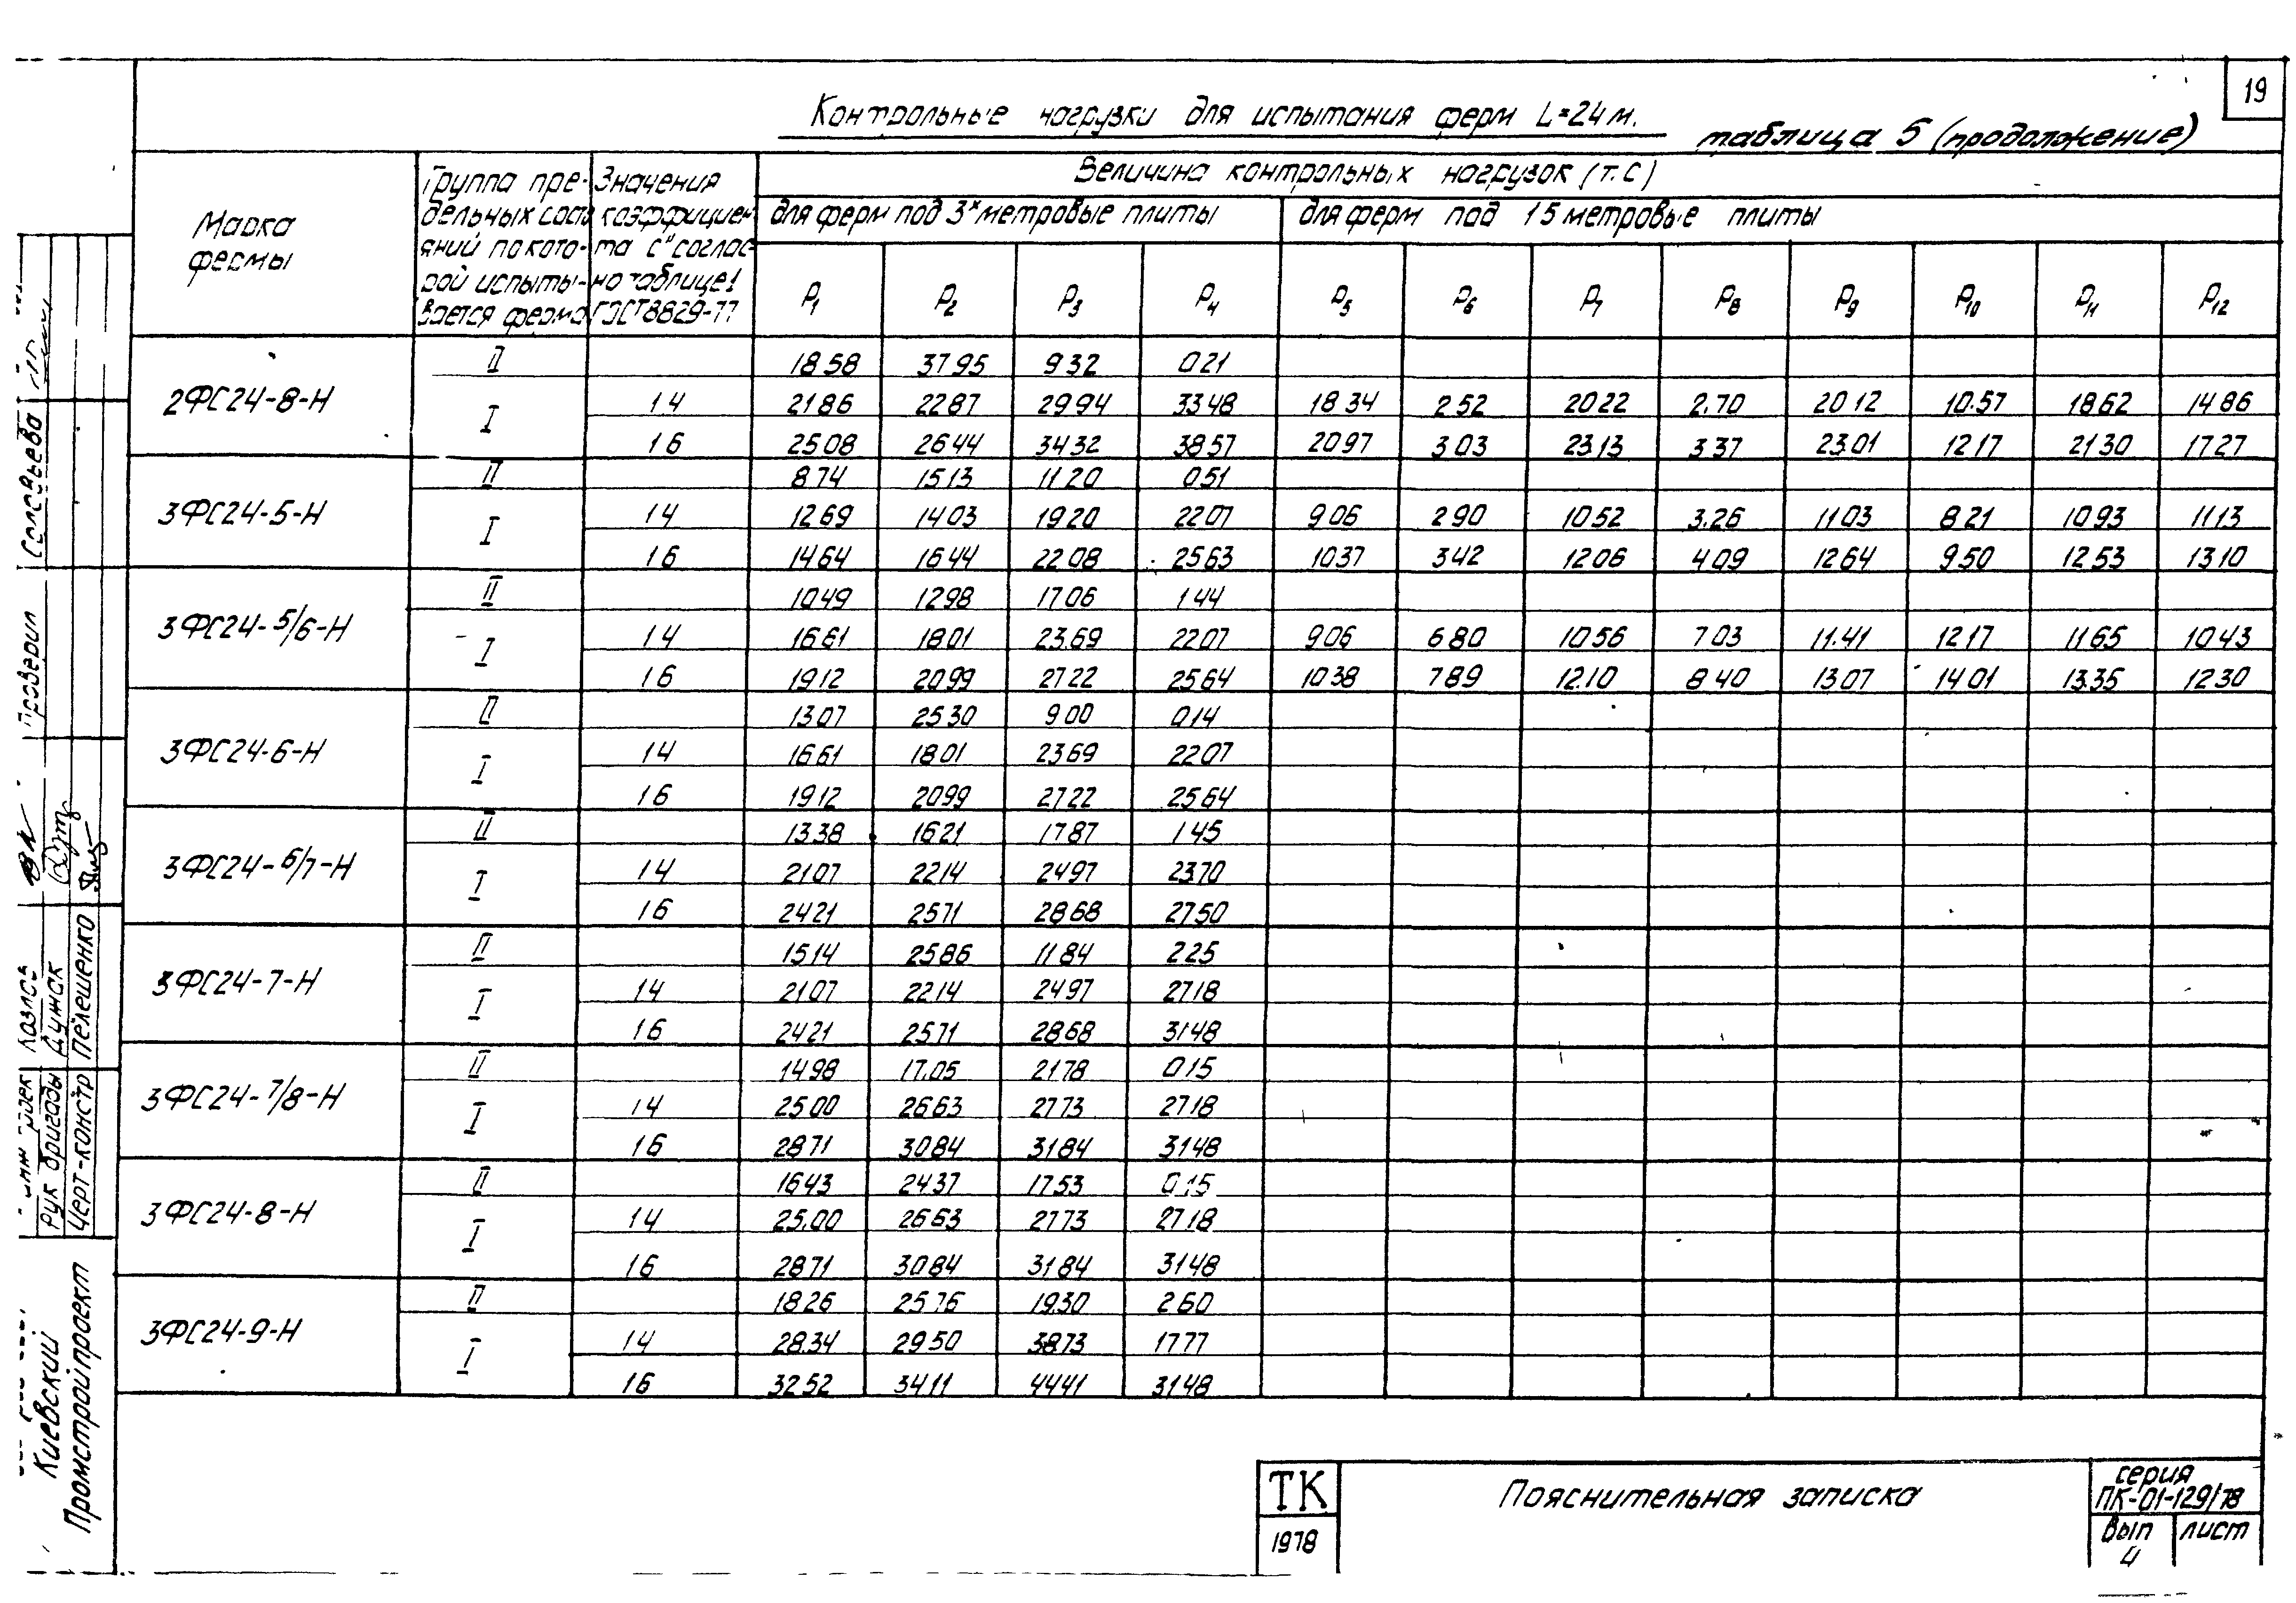 19
Контрольные нагрузки для испытания ферм L=24м.
таблица 5 (продолжение)
Марка фермы
Группа пре-
дельных сост
яний по кото-
рой испыты-
вается ферма
Значения
коэффициен
та С" соглас-
но таблице 1
ГОСТ 8829-77
Величина контрольных нагрузок (т.с)
для ферм под 3х метровые плиты
для ферм под 15 метровые плиты
P1 P2 P3 P4 P5 P6 P7 P8 P9 P10 P11 P12
2ФС24-8-Н
II 18 58 37 95 9 32 0 21
I 1 4 21 86 22 87 29 94 33 48 18 34 2 52 20 22 2.70 20 12 10.57 18 62 14 86
1 6 25 08 26 44 34 32 38 57 20 97 3 03 23.13 3 37 23.01 12 17 21 30 17 27
3ФС24-5-Н
II 8 74 15 13 11 20 0 51
I 1 4 12 69 14 03 19 20 22 07 9 06 2 90 10 52 3.26 11 03 8 21 10 93 11 13
1 6 14 64 16 44 22 08 25 63 10 37 3 42 12 06 4 09 12 64 9 50 12 53 13 10
3ФС24-5/6-Н
II 10 49 12 98 17 06 1 44
I 1 4 16 61 18 01 23.69 22 07 9 06 6 80 10 56 7 03 11.41 12 17 11 65 10 43
1 6 19 12 20 99 27 22 25 64 10 38 7 89 12.10 8 40 13 07 14 01 13.35 12 30
3ФС24-6-Н
II 13 07 25 30 9 00 0 14
I 1 4 16 61 18 01 23 69 22 07
1 6 19 12 20 99 27 22 25 64
3ФС24-6/7-Н
II 13.38 16 21 17 87 1 45
I 1 4 21 07 22 14 24 97 23.70
1 6 24 21 25 71 28 68 27 50
3ФС24-7-Н
II 15 14 25 86 11 84 2 25
I 1 4 21 07 22 14 24 97 27 18
1 6 24 21 25 71 28 68 31 48
3ФС24-7/8-Н
II 14 98 17.05 21 78 0 15
I 1 4 25 00 26 63 27 73 27 18
1 6 28 71 30 84 31 84 31 48
3ФС24-8-Н
II 16 43 24 37 17 53 0 15
I 1 4 25.00 26 63 27 73 27 18
1 6 28 71 30 84 31 84 31 48
3ФС24-9-Н
II 18 26 25 76 19.30 2 60
I 1 4 28.34 29 50 38 73 17 77
1 6 32 52 34 11 44 41 31 48
ТК
1978
Пояснительная записка
серия
ПК-01-129/78
вып
4
лист
Киевский
Промстройпроект
Рук бригады Дунск
Черт-констр Пелешенко
Козлов
Проверил Соловьева